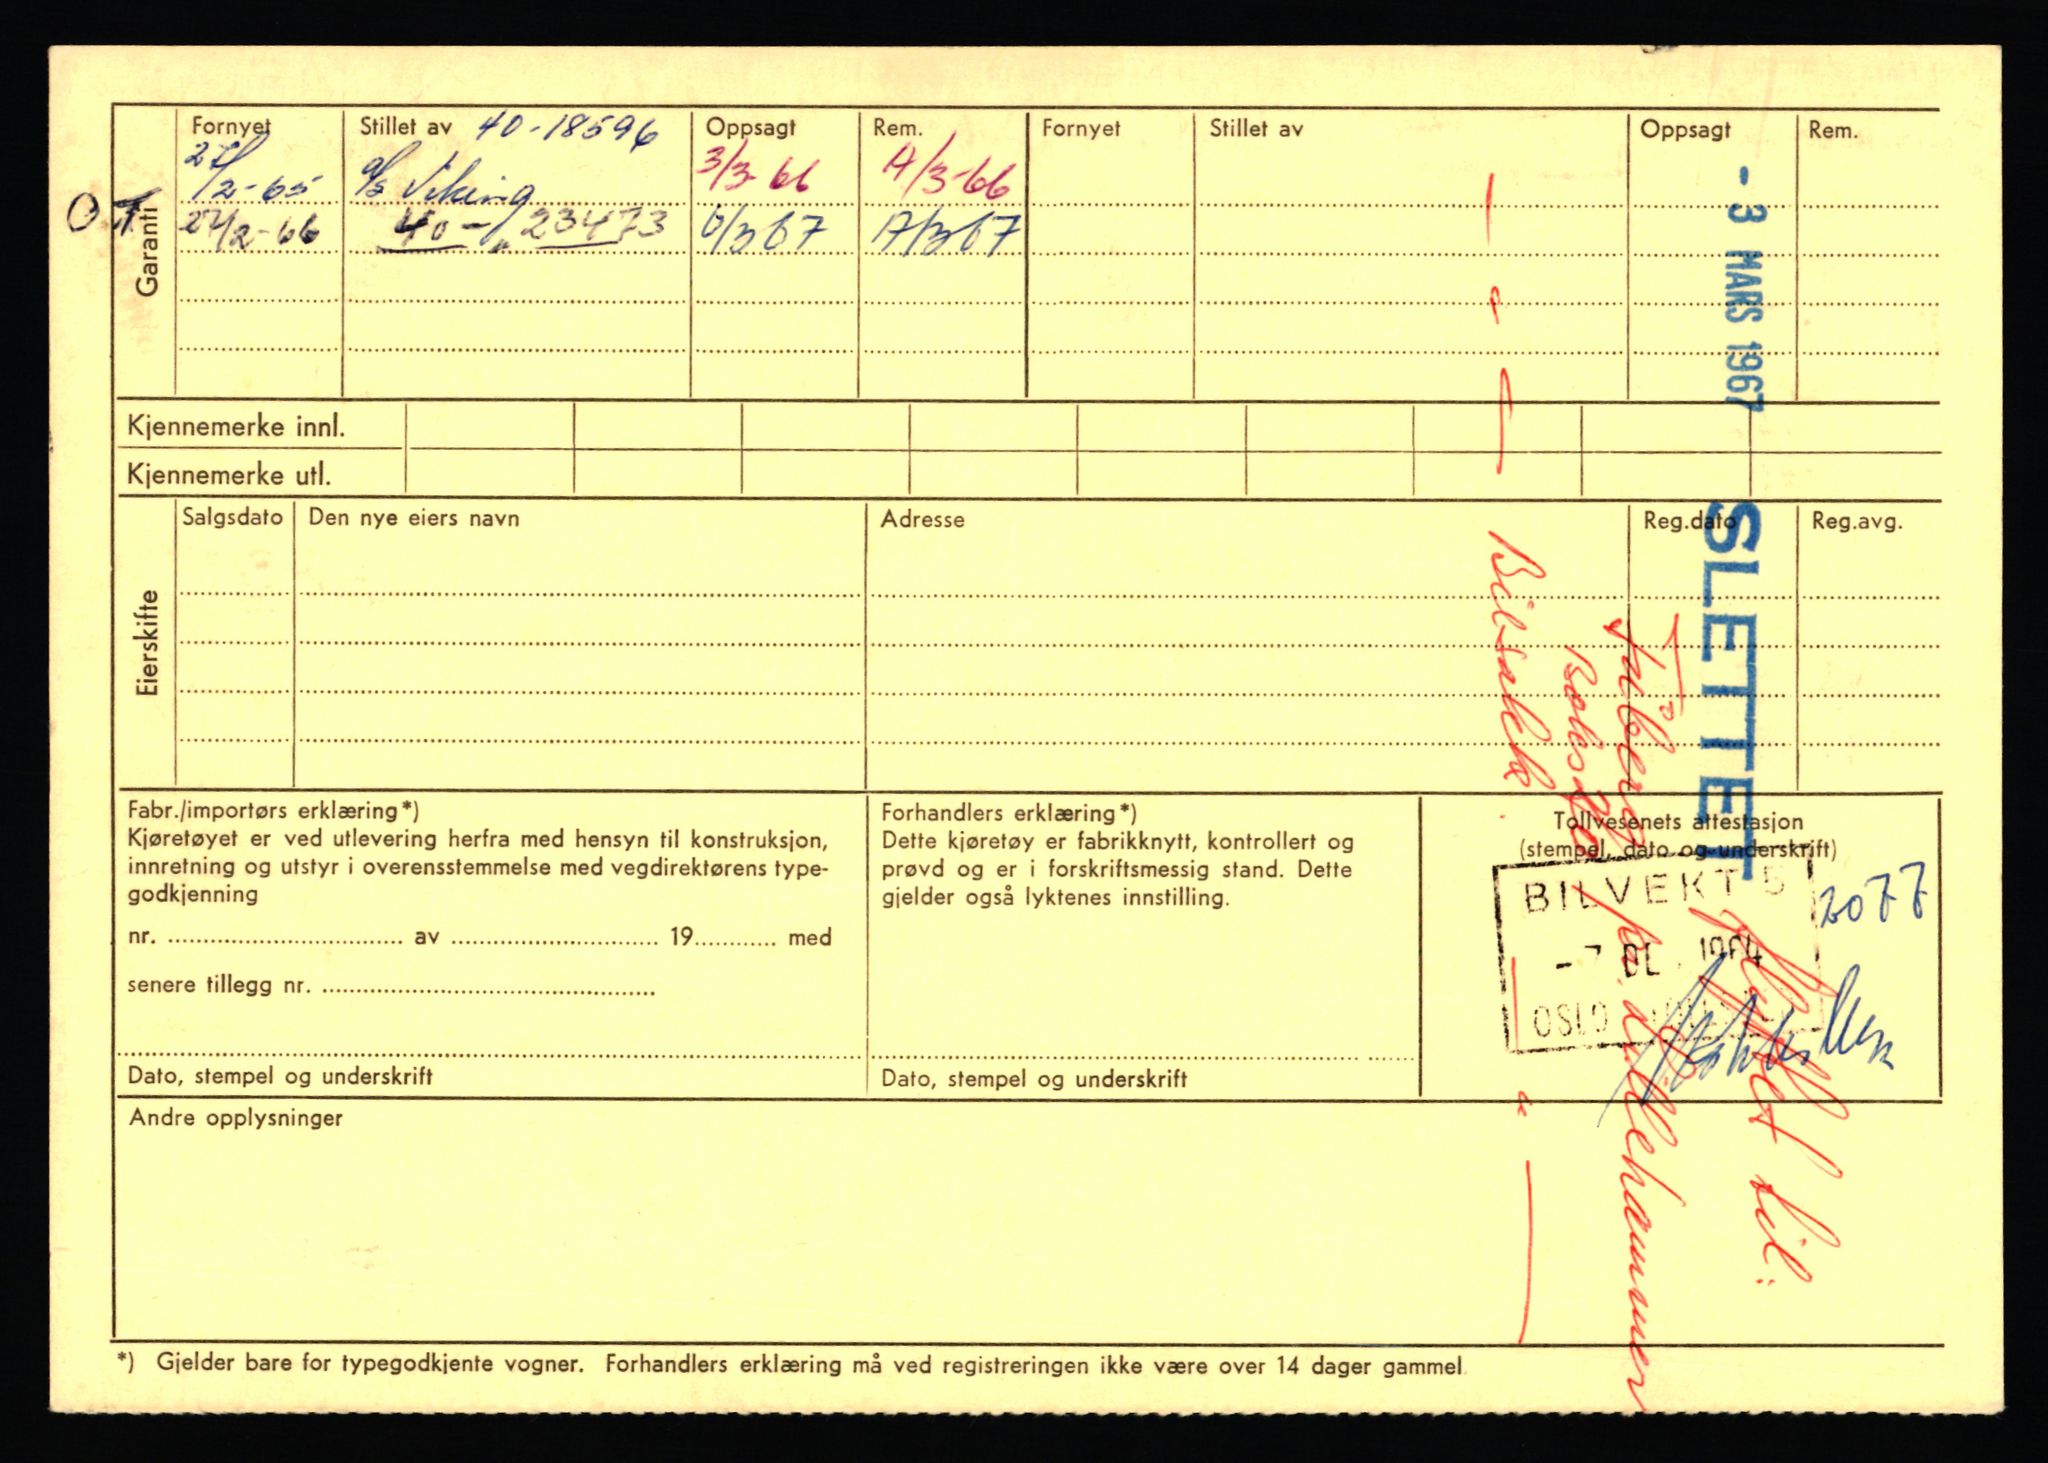 Garanti
Fornyet
Stillet av 40-18596
Oppsagt
Rem.
Fornyet
Stillet av
Oppsagt
Rem.
27/2-65
a/s Viking
3/3-66
A/3-66
27/2-66
40 - 23473
A/3 67
- 3 MARS 1967
SLETTET
Kjennemerke innl.
Kjennemerke utl.
Eierskifte
Salgsdato
Den nye eiers navn
Adresse
Reg.dato
Reg.avg.
Flyttet til:
Fåberg
på Lillehammer
Fabr./importørs erklæring*)
Kjøretøyet er ved utlevering herfra med hensyn til konstruksjon,
innretning og utstyr i overensstemmelse med vegdirektørens type-
godkjenning
nr. av 19 med
senere tillegg nr.
Dato, stempel og underskrift
Forhandlers erklæring*)
Dette kjøretøy er fabrikknytt, kontrollert og
prøvd og er i forskriftsmessig stand. Dette
gjelder også lyktenes innstilling.
Dato, stempel og underskrift
Tollvesenets attestasjon
(stempel, dato og underskrift)
BILVEKT 5
1964
OSLO
2077
Andre opplysninger
*) Gjelder bare for typegodkjente vogner. Forhandlers erklæring må ved registreringen ikke være over 14 dager gammel